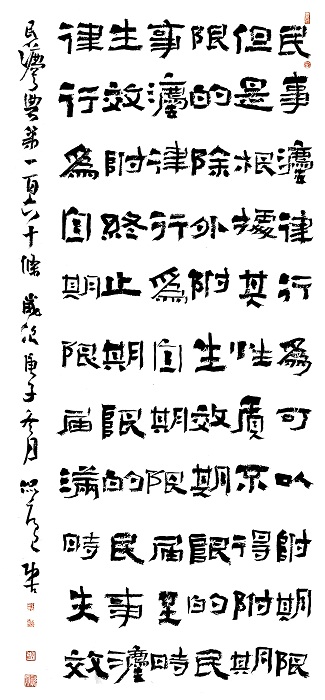 民事灋律行為可以附期限
但是根據其性質不得附期
限的除外附生效期限的民
事灋律行為自期限屆至時
生效附終止期限的民事灋
律行為自期限屆滿時失效
民灋典第一百六十條 歲次庚子冬月 書